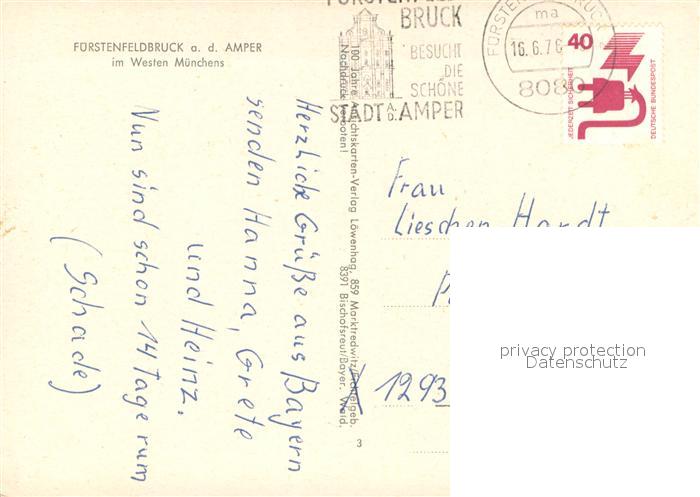 FÜRSTENFELDBRUCK a. d. AMPER
im Westen Münchens
BRUCK
BESUCHT
DIE
SCHÖNE
STADT a.d. AMPER
16.6.76
ma
8080
40
JEDERZEIT SICHERHEIT
DEUTSCHE BUNDESPOST
Herzliche Grüße aus Bayern
senden Hanna, Grete
und Heinz.
Nun sind schon 14 Tage rum
(Schade)
100 Jahre Ansichtskarten-Verlag Löwenhag, 859 Marktredwitz/Fichtelgeb.
Nachdruck verboten! 8391 Bischofsreut/Bayer. Wald.
3
Frau
Lieschen Hardt
1293
privacy protection
Datenschutz